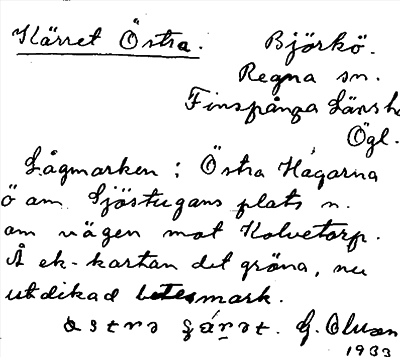 Kärret Östra. Björkö.
Regna sn.
Finspånga Länsh
Ögl.
Lågmarken i Östra Hagarna
ö om Sjöstugans plats n.
om vägen mot Kolvetorp.
Å ek-kartan det gröna, nu
utdikad betesmark.
G. Olson
1933